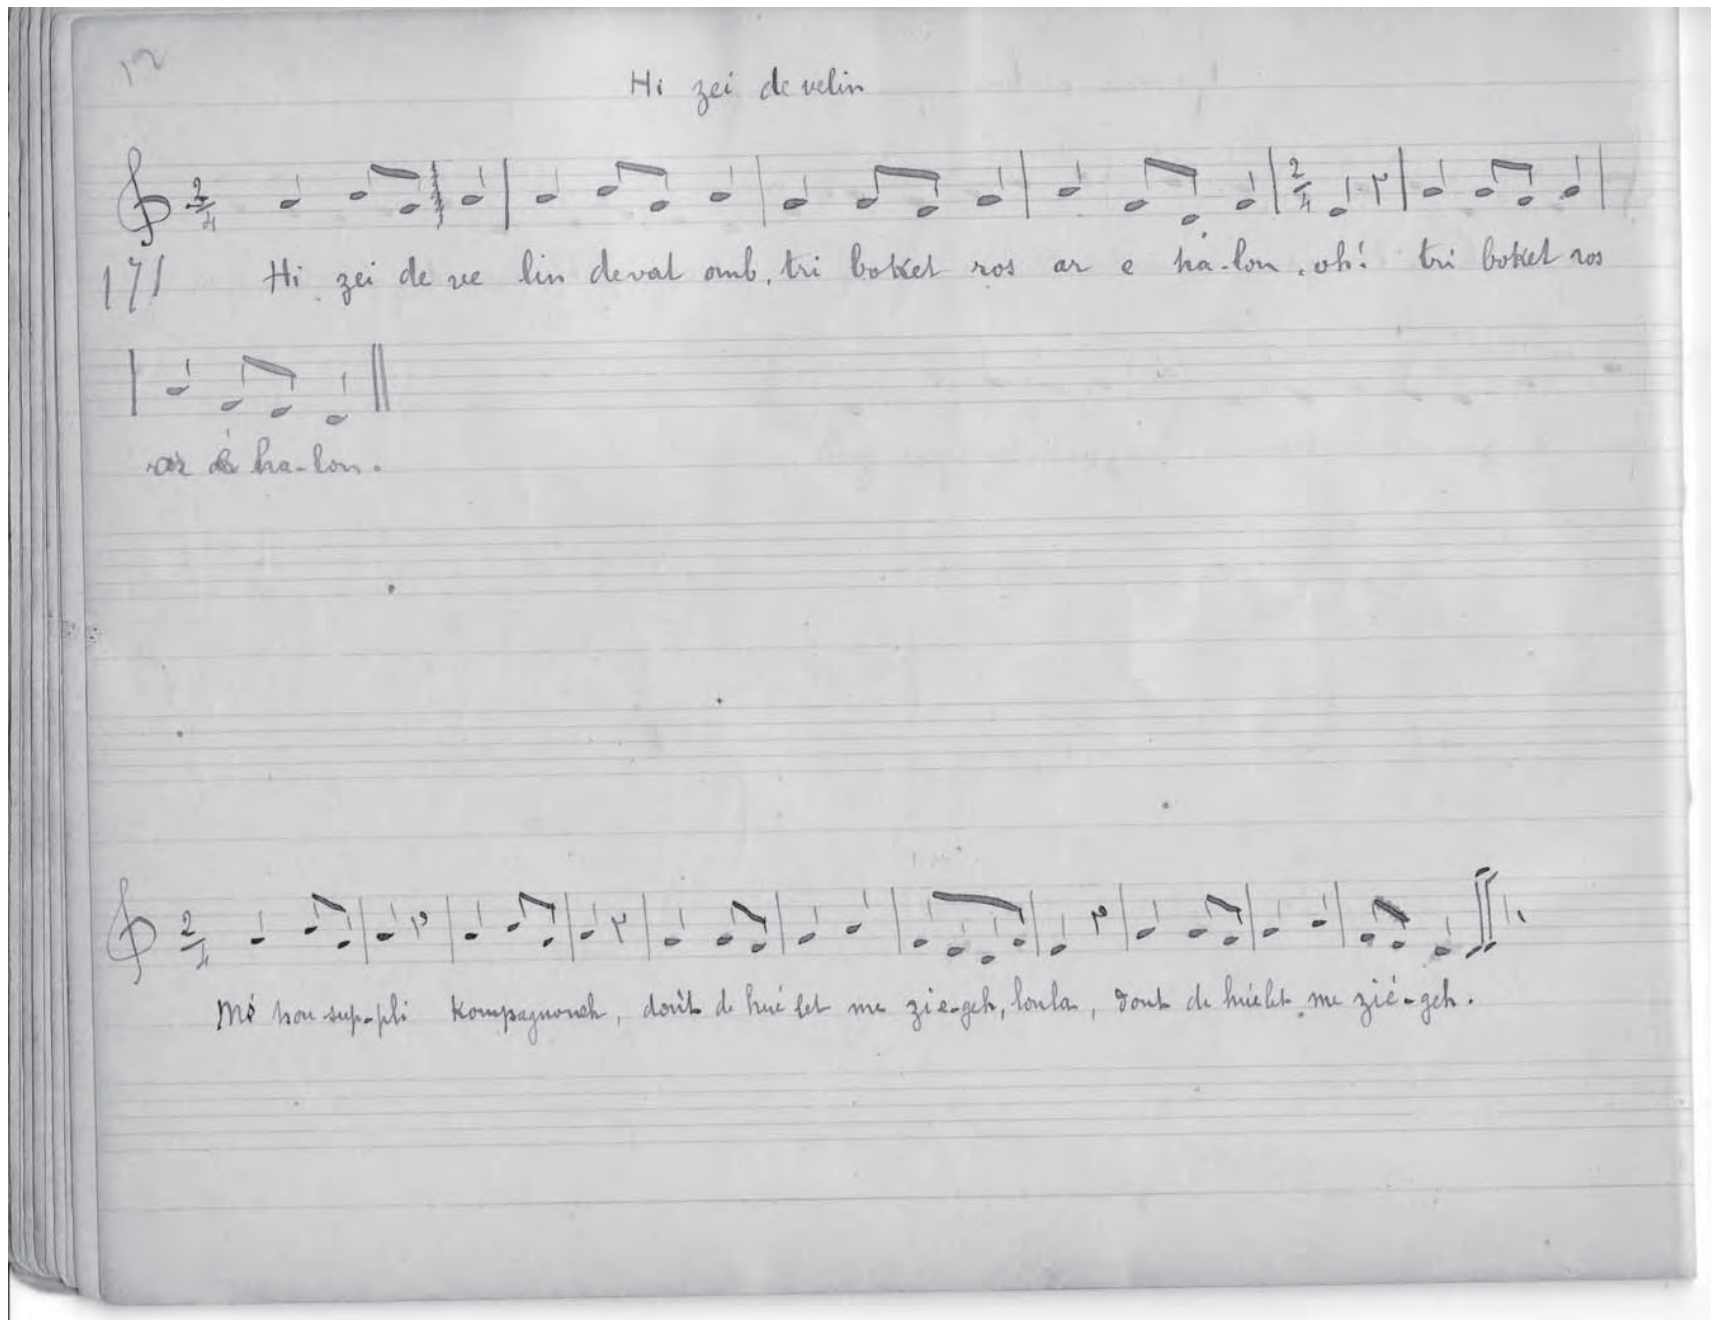 Hi zei de velin
2/4
171 Hi zei de ve lin deval omb, tri boket ros ar e ha-lon, oh! tri boket ros
ar é ha-lon.
2/4
Mé hou sup-pli Kompagnoneh, dont de hué let me zie-geh, lonla, dont de huélet me zié-geh.